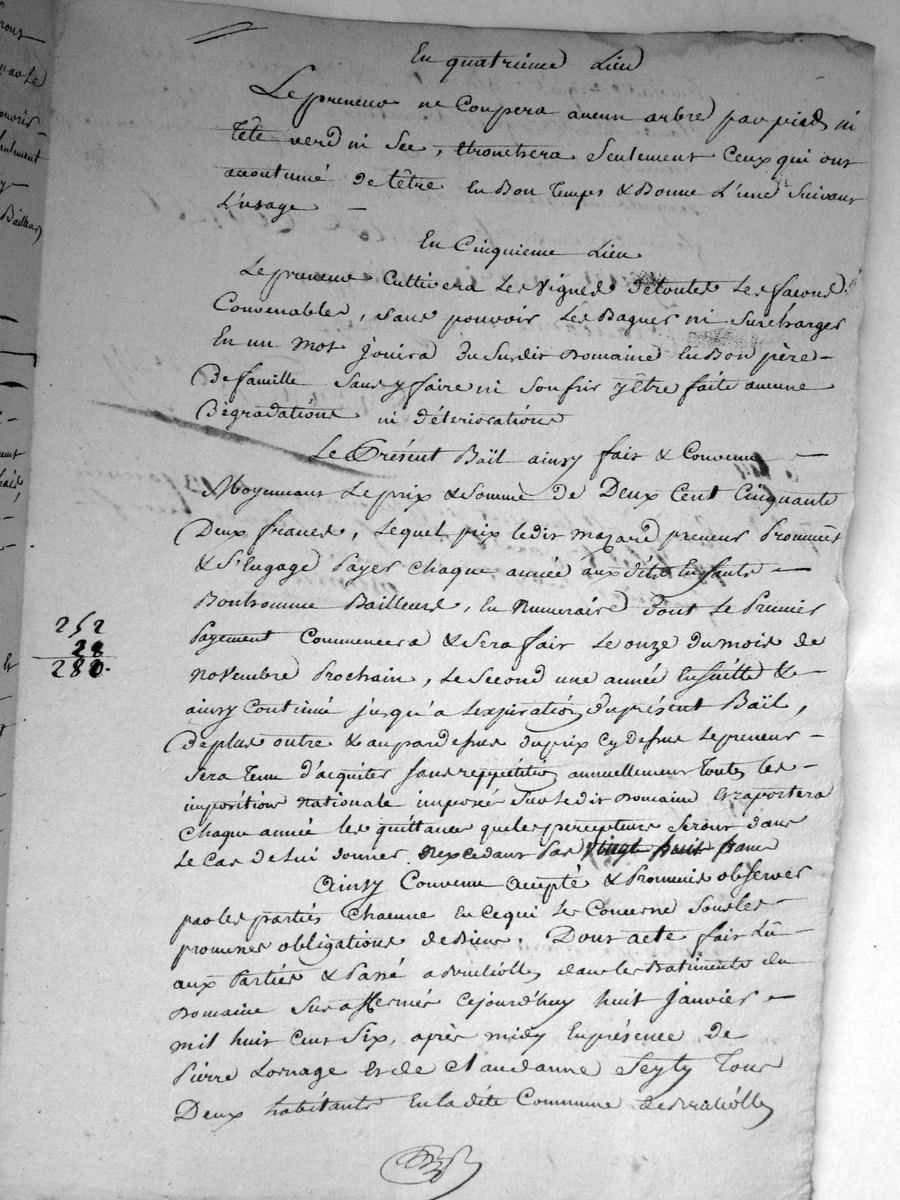 En quatrieme Lieu
Le preneur ne Coupera aucun arbre par pied ni
Tête verd ni Sec, Etronchera Seulement Ceux qui ont
accoutumé de l'être En Bon Temps & Bonne L'une Suivant
L'usage —
En Cinquieme Lieu
Le preneur Cultivera Les vignes de toutes Les façons
Convenables, Sans pouvoir Les Baguer ni Surcharger
En un mot Jouira du Susdit Domaine En Bon père –
De famille Sans y faire ni Soufrir y être faite aucune
Dégradations ni déteriorations
Le Présent Baïl ainsy fait & Convenu —
Moyennant Le prix & Somme de Deux Cent Cinquante
Deux francs, Lequel prix ledit mazard preneur Prommet
& S'Engage Payer Chaque année aux dits Enfants —
Bonhomme Bailleurs, En Numeraire dont Le Premier
Payement Commencera & Sera fait Le onze du mois de
252
28
280.
Novembre Prochain, Le Second une année Ensuitte & —
ainsy Continué jusqu'a L'expiration du présent Baïl,
De plus outre & au pardessus du prix Cy dessus Le preneur –
Sera Tenu d'acquiter Sans reppétition annuellement Toutes les
impositions nationale imposés Sur Ledit Domaine Et raportera
Chaque année les quittance que les percepteurs Seront dans
Le Cas de Lui donner, n'excedant Pas vingt huit francs
Ainsy Convenu accepté & Promis observer
par les parties Chacune En Ce qui Les Concerne Sous les –
promisses obligations de Biens. Dont acte fait Lû —
aux Parties & Passé a dans les Batiments du
Domaine Sus affermés Cejourd'huy huit Janvier —
mil huit Cent Six, après midy En présence de
Pierre Lornage Et de Claudanne Seyty Tous
Deux habitants En la dite Commune de